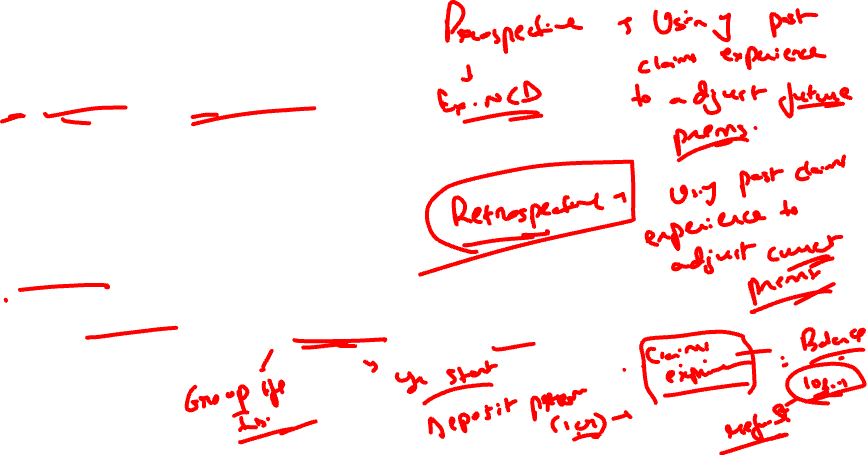 Prospective → Using past
claims experience
to adjust future
prems.
↓
Ex. NCD
Retrospective → Using past claims
experience to
adjust current
prems
Group life
Ins.
→ yr start
Deposit
→ Claims
: Balance
refund